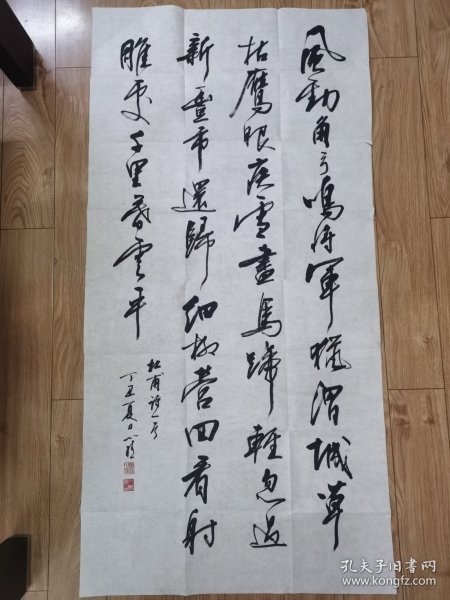 風勁角弓鳴将軍獵渭城草
枯鷹眼疾雪盡馬蹄輕忽過
新豐市還歸細柳營回看射
雕處千里暮雲平
杜甫詩一首
丁丑夏日
孔夫子旧书网
www.kongfz.com